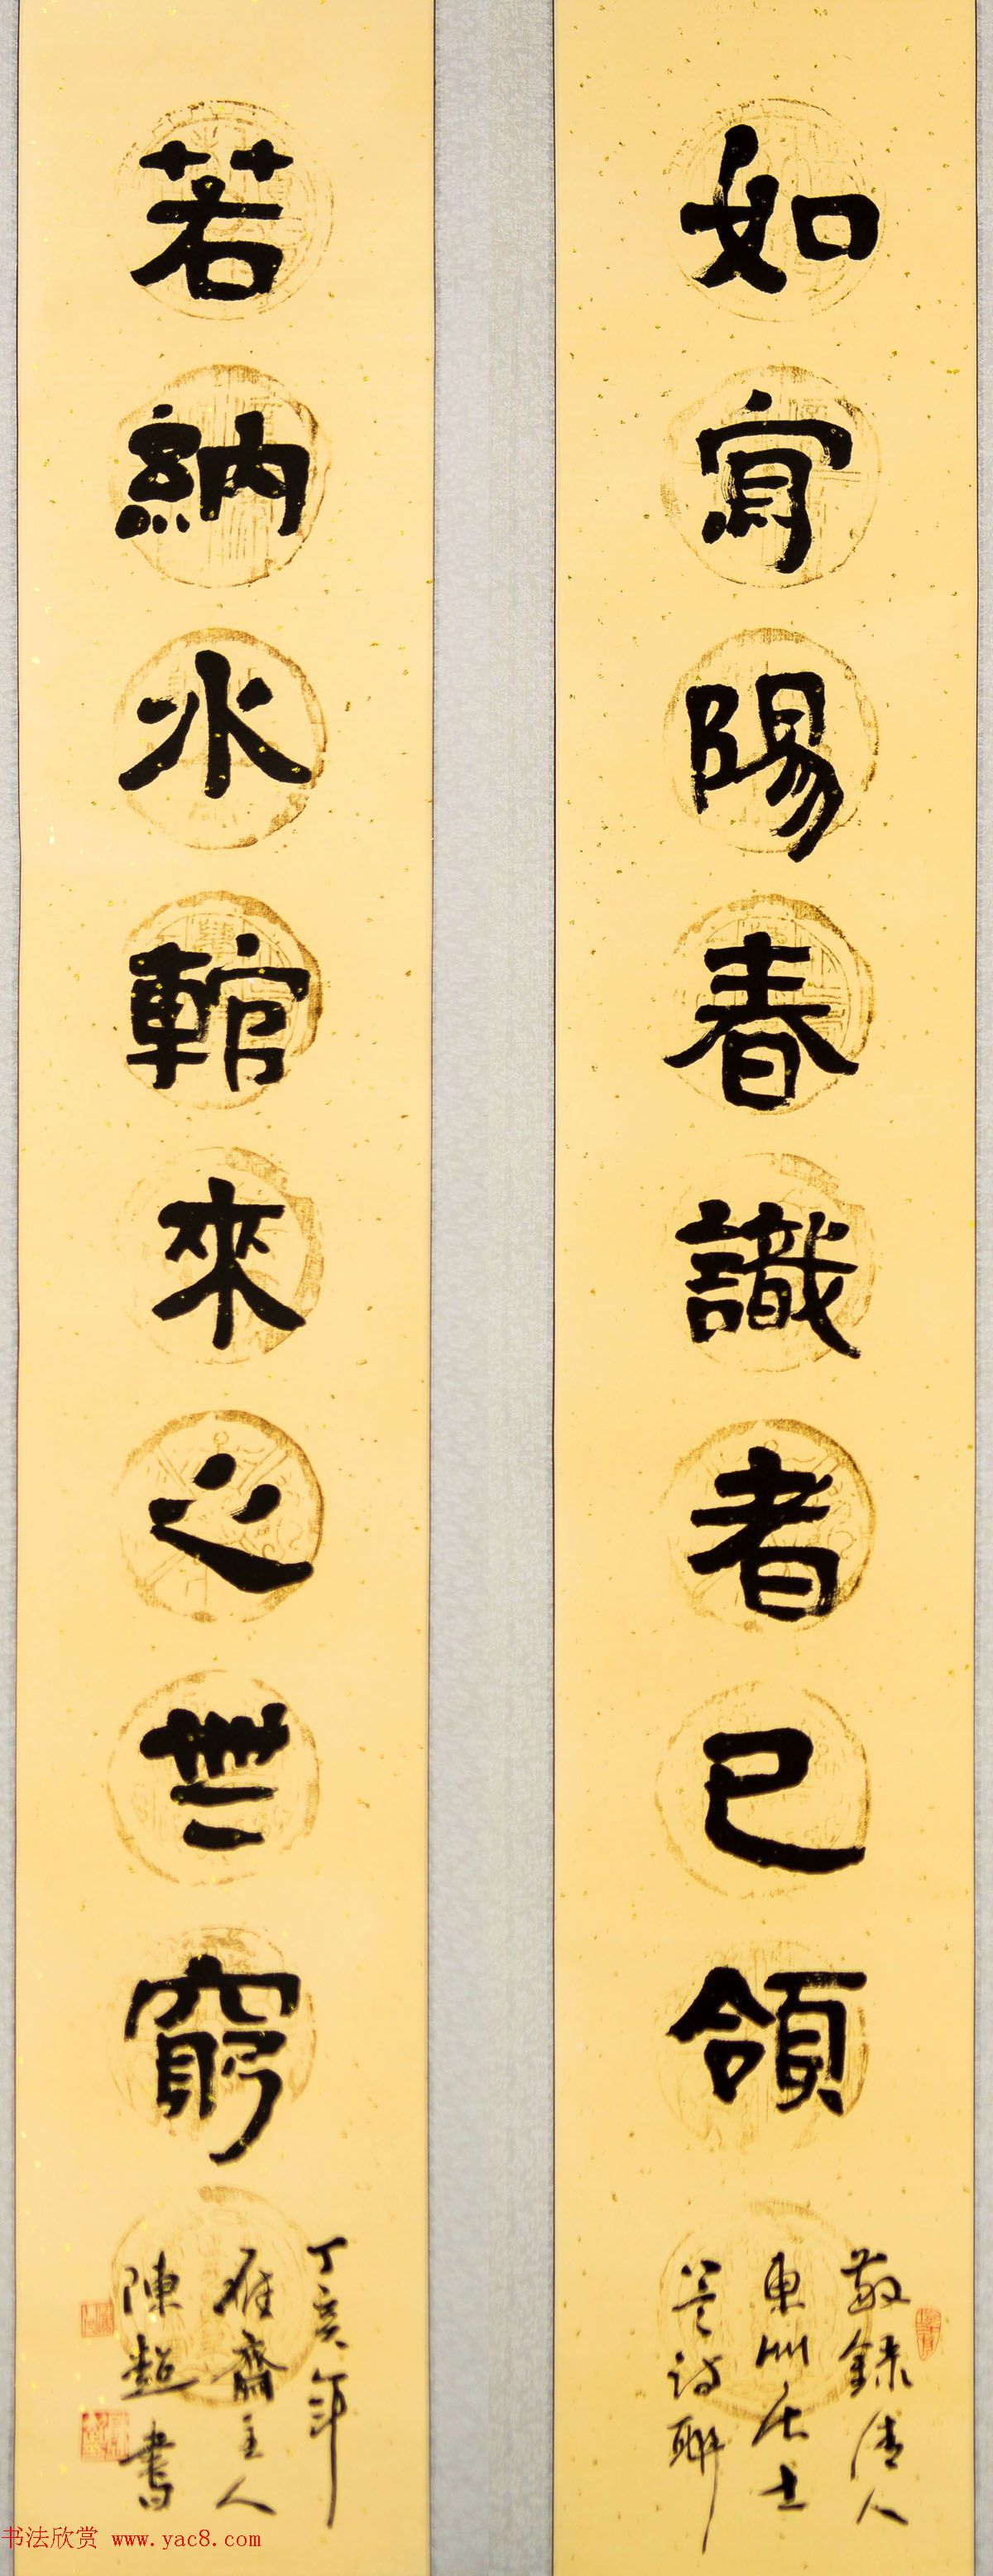 如寫陽春識者已領
敬錄清人
東洲居士
詩聯
若納水輨來之無窮
丁亥年
雅齋主人
陳超書
书法欣赏 www.yac8.com